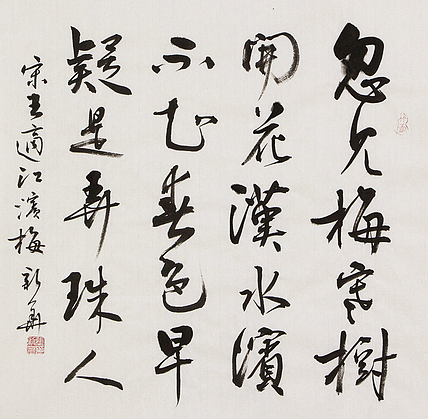 忽見梅寒樹
開花漢水濱
不知春色早
疑是弄珠人
宋王適江濱梅 新華